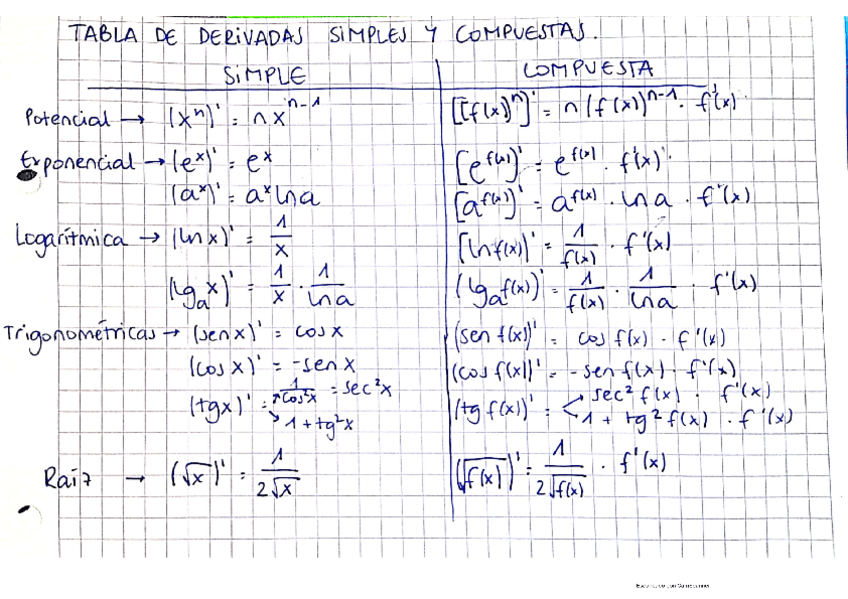 TABLA DE DERIVADAS SIMPLES Y COMPUESTAS.
SIMPLE COMPUESTA
Potencial → (xⁿ)' = nxⁿ⁻¹ [[f(x)ⁿ]' = n(f(x))ⁿ⁻¹ · f'(x)
Exponencial → (eˣ)' = eˣ [e^f(x)]' = e^f(x) · f'(x)
(aˣ)' = aˣ ln a [a^f(x)]' = a^f(x) · ln a · f'(x)
Logarítmica → (ln x)' = 1/x [ln f(x)]' = 1/f(x) · f'(x)
(lgₐ x)' = 1/x · 1/ln a (lgₐ f(x))' = 1/f(x) · 1/ln a · f'(x)
Trigonométricas → (sen x)' = cos x (sen f(x))' = cos f(x) · f'(x)
(cos x)' = -sen x (cos f(x))' = -sen f(x) · f'(x)
(tg x)' = 1/cos²x = sec²x (tg f(x))' = sec² f(x) · f'(x)
1 + tg²x 1 + tg² f(x) · f'(x)
Raíz → (√x)' = 1/2√x (√f(x))' = 1/2√f(x) · f'(x)
Escaneado con CamScanner